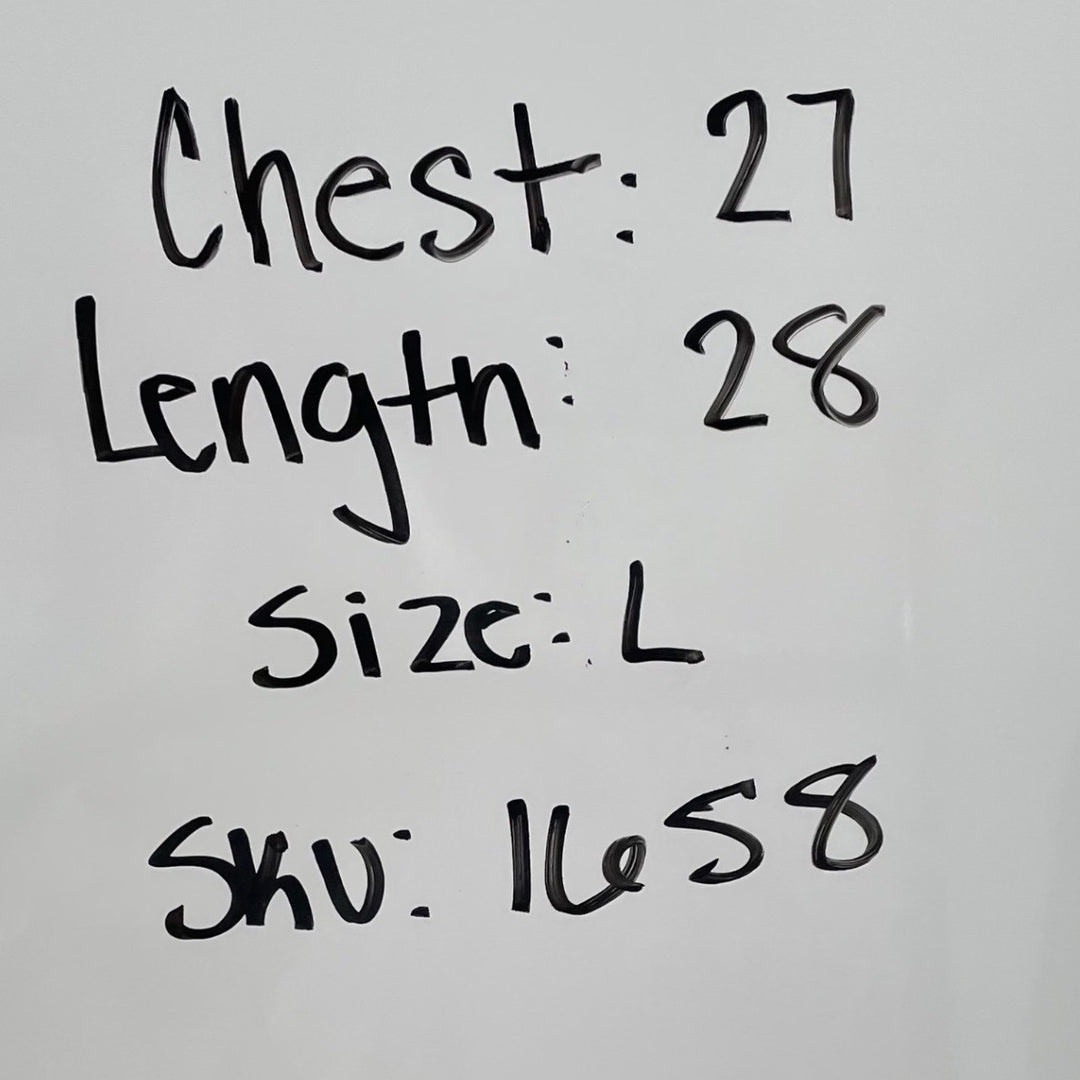 Chest: 27
Length: 28
Size: L
Sku: 1658